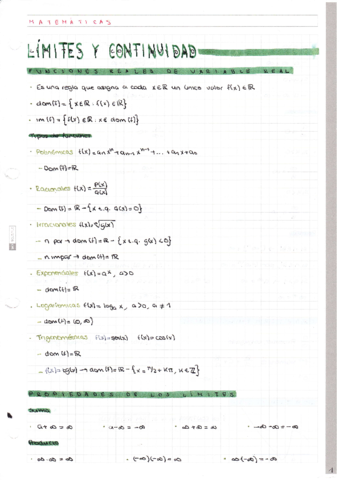 MATEMÁTICAS
LÍMITES Y CONTINUIDAD
FUNCIONES REALES DE VARIABLE REAL
· Es una regla que asigna a cada x∈ℝ un único valor f(x)∈ℝ
· dom(f) = {x∈ℝ : f(x)∈ℝ}
· im(f) = {f(x)∈ℝ : x∈dom(f)}
Tipos de funciones
· Polinómicas f(x)=aₙxⁿ+aₙ₋₁xⁿ⁻¹+...+a₁x+a₀
- Dom(f)=ℝ
· Racionales f(x)=P(x)/Q(x)
- Dom(f)=ℝ-{x t.q. Q(x)=0}
· Irracionales f(x)=ⁿ√g(x)
- n par → dom(f)=ℝ-{x t.q. g(x)<0}
- n impar → dom(f)=ℝ
· Exponenciales f(x)=aˣ, a>0
- dom(f)=ℝ
· Logarítmicas f(x)=logₐx, a>0, a≠1
- dom(f)=(0,∞)
· Trigonométricas f(x)=sen(x) f(x)=cos(x)
- dom(f)=ℝ
- f(x)=tg(x) → dom(f)=ℝ-{x=π/2+kπ, k∈ℤ}
PROPIEDADES DE LOS LÍMITES
Suma
· a+∞=∞ · a-∞=-∞ · ∞+∞=∞ · -∞-∞=-∞
Producto
· ∞·∞=∞ · (-∞)(-∞)=∞ · ∞(-∞)=-∞
1